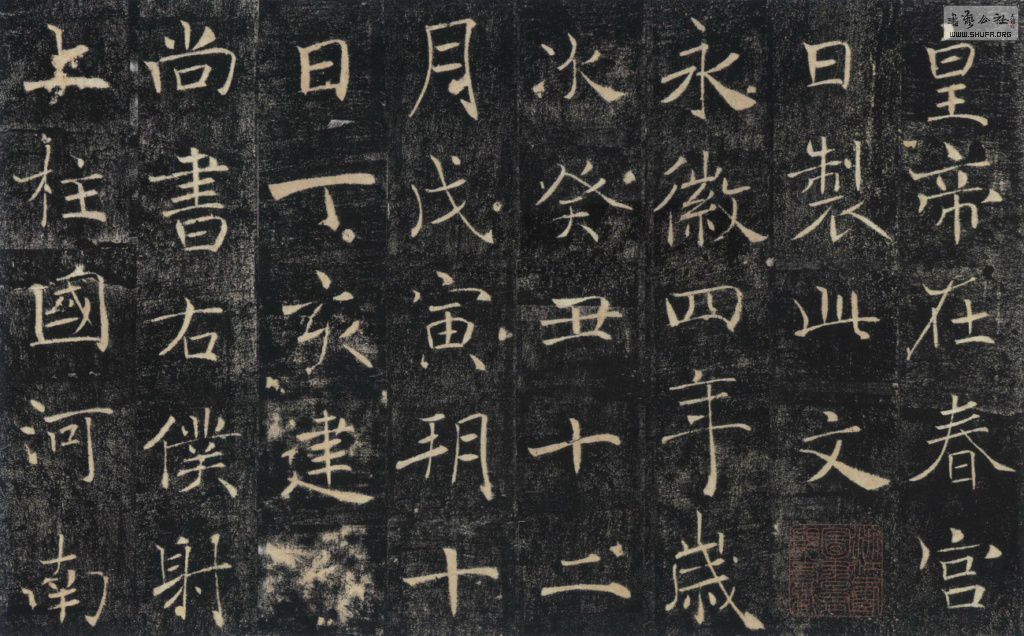 皇帝在春宫
日製此文
永徽四年歲
次癸丑十二
月戊寅玥十
日丁亥建
尚書右僕射
上柱國河南
WWW.SHUFA.ORG